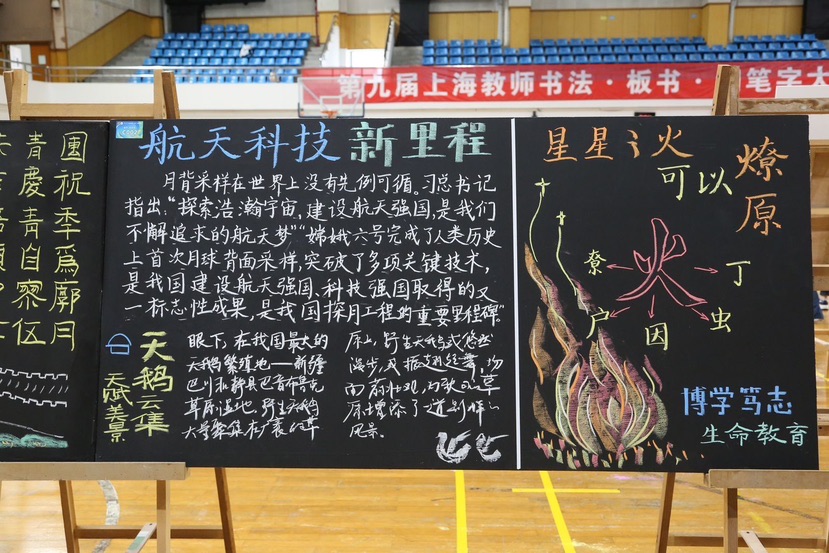 第九届上海教师书法·板书·
笔字大
團祝季爲廓月
青慶青自黎伍
航天科技 新里程
月背采样在世界上没有先例可循。习总书记
指出:“探索浩瀚宇宙,建设航天强国,是我们
不懈追求的航天梦”“嫦娥六号完成了人类历史
上首次月球背面采样,突破了多项关键技术,
是我国建设航天强国、科技强国取得的又
一标志性成果,是我国探月工程的重要里程碑。”
天鹅云集
天赋美景
眼下,在我国最大的
天鹅繁殖地——新疆
巴州和静县巴音布鲁克
草原湿地,野生天鹅
大量聚集在广袤的草
原上,野生天鹅或悠然
漫步,或振翅起舞,场
面蔚为壮观,为秋日草
原增添了一道别样的
风景。
星星之火
可以
燎原
火
尞
丁
户
因
虫
博学笃志
生命教育